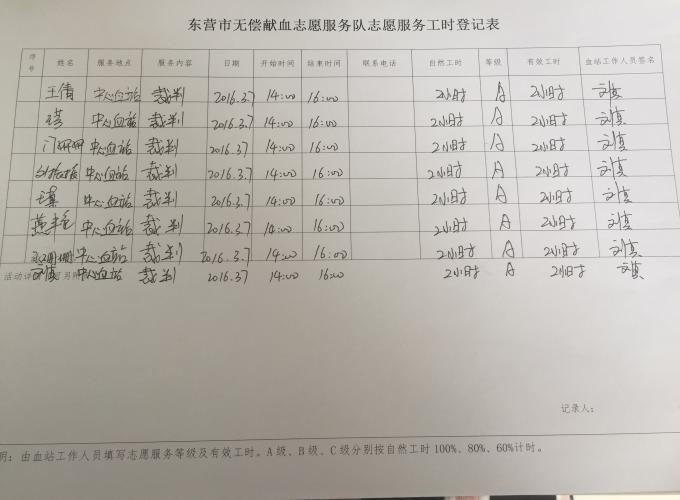 东营市无偿献血志愿服务队志愿服务工时登记表
序号 姓名 服务地点 服务内容 日期 开始时间 结束时间 联系电话 自然工时 等级 有效工时 血站工作人员签名
王倩 中心血站 裁判 2016.3.7 14:00 16:00 2小时 A 2小时 刘真
中心血站 裁判 2016.3.7 14:00 16:00 2小时 A 2小时 刘真
中心血站 裁判 2016.3.7 14:00 16:00 2小时 A 2小时 刘真
中心血站 裁判 2016.3.7 14:00 16:00 2小时 A 2小时 刘真
中心血站 裁判 2016.3.7 14:00 16:00 2小时 A 2小时 刘真
中心血站 裁判 2016.3.7 14:00 16:00 2小时 A 2小时 刘真
中心血站 裁判 2016.3.7 14:00 16:00 2小时 A 2小时 刘真
刘真 中心血站 裁判 2016.3.7 14:00 16:00 2小时 A 2小时 刘真
记录人：
明：由血站工作人员填写志愿服务等级及有效工时。A级、B级、C级分别按自然工时100%、80%、60%计时。